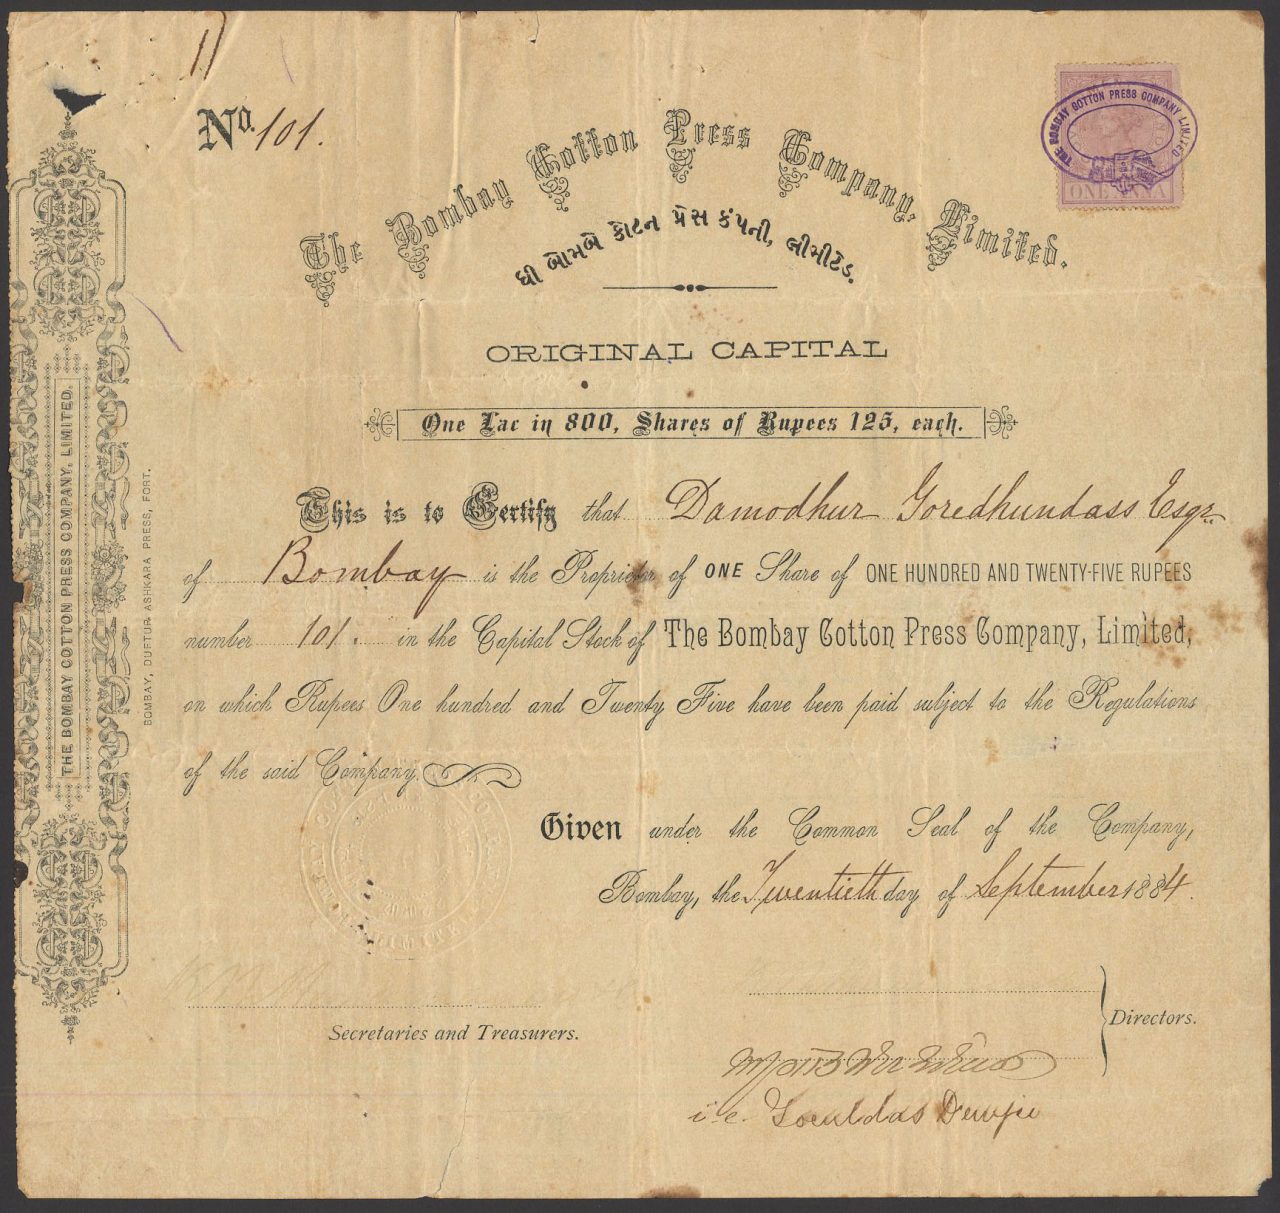 No. 101.
The Bombay Cotton Press Company, Limited.
ધી બોમબે કોટન પ્રેસ કંપની, લીમીટેડ.
THE BOMBAY COTTON PRESS COMPANY LIMITED
ONE ANNA
ORIGINAL CAPITAL
One Lac in 800, Shares of Rupees 125, each.
This is to Certify that Damodhur Goredhundass Esqr.
of Bombay is the Proprietor of ONE Share of ONE HUNDRED AND TWENTY-FIVE RUPEES
number 101. in the Capital Stock of The Bombay Cotton Press Company, Limited,
on which Rupees One hundred and Twenty Five have been paid subject to the Regulations
of the said Company.
Given under the Common Seal of the Company,
Bombay, the Twentieth day of September 1884.
Secretaries and Treasurers.
Directors.
i.e. Goculdas Dewjee
THE BOMBAY COTTON PRESS COMPANY, LIMITED.
BOMBAY, DUFTUR ASHKARA PRESS, FORT.